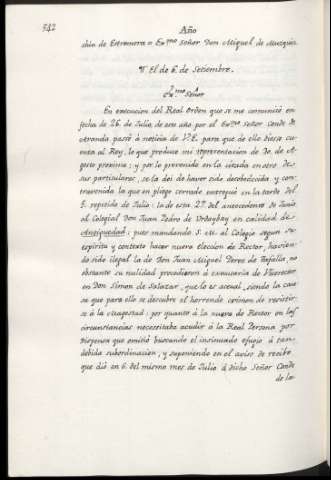 342
Año
chia de Estremera o Ex.mo Señor Don Miguel de Muzquiz.
El de 6. de Setiembre.
Ex.mo Señor
En execucion del Real Orden que se me comunicó en
fecha de 26. de Julio de este año por el Ex.mo Señor Conde de
Aranda passó à noticia de V.E. para que de ello diesse cu-
enta al Rey, lo que produce mi representacion de 30. de A-
gosto proximo; y por lo prevenido en la citada en otro de
sus particulares, se la dei de haver sido desobedecida y con-
travenida la que en pliego cerrado entregué en la tarde del
5. repetido de Julio: la de esta 27. del antecedente de Junio
al Colegial Don Juan Pedro de Urdeybay en calidad de
Antiguedad: pues mandando S. M. al Colegio segun su
espiritu y contexto hacer nueva eleccion de Rector, havien-
do sido ilegal la de Don Juan Miguel Perez de Tafalla, no
obstante su nulidad procedieron à executarla de Vicerector
en Don Simon de Salazar, que lo es actual, siendo la cau-
sa que para ello se descubre el horrendo crimen de resistir-
se à la Magestad: por quanto à la nueva de Rector en las
circunstancias necesitaba acudir à la Real Persona por
dispensa que omitió buscando el insinuado efugio à tan
debida subordinacion, y suponiendo en el aviso de recibo
que dió en 6. del mismo mes de Julio à dicho Señor Conde
de la